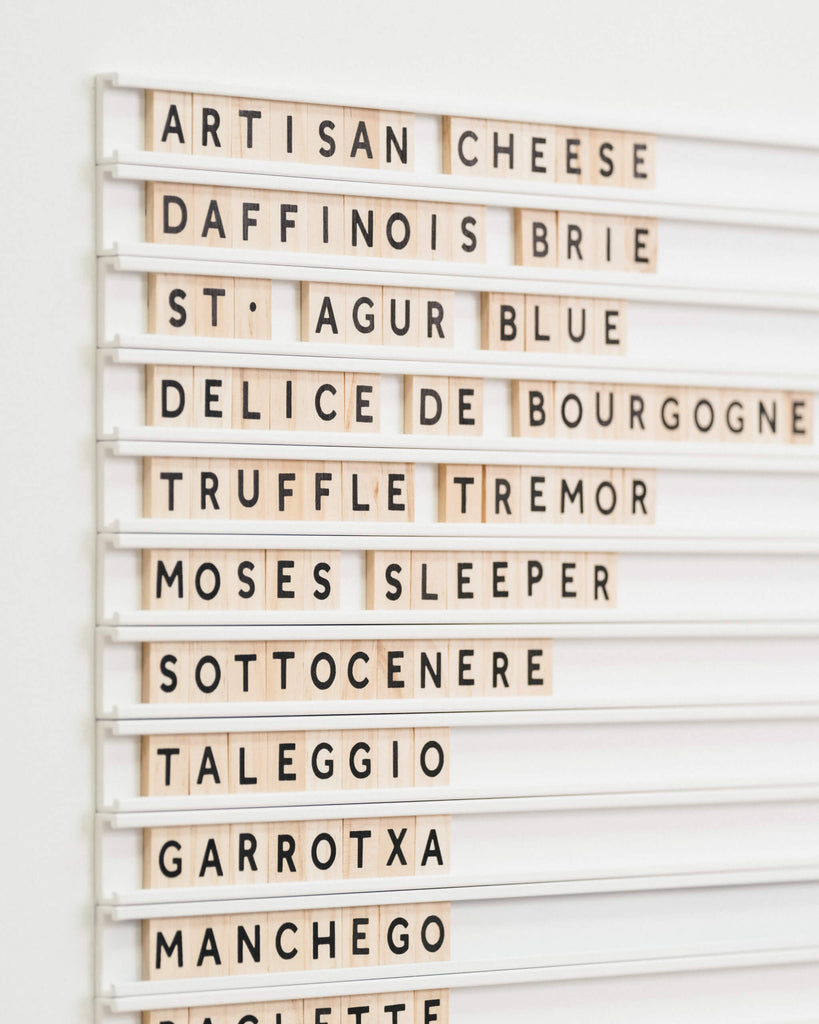 ARTISAN CHEESE
DAFFINOIS BRIE
ST· AGUR BLUE
DELICE DE BOURGOGNE
TRUFFLE TREMOR
MOSES SLEEPER
SOTTOCENERE
TALEGGIO
GARROTXA
MANCHEGO
RACLETTE